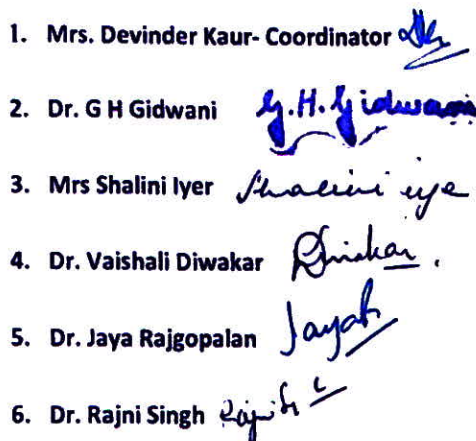 1. Mrs. Devinder Kaur- Coordinator
2. Dr. G H Gidwani G.H.Gidwani
3. Mrs Shalini Iyer Shalini iye
4. Dr. Vaishali Diwakar Diwakar.
5. Dr. Jaya Rajgopalan
6. Dr. Rajni Singh